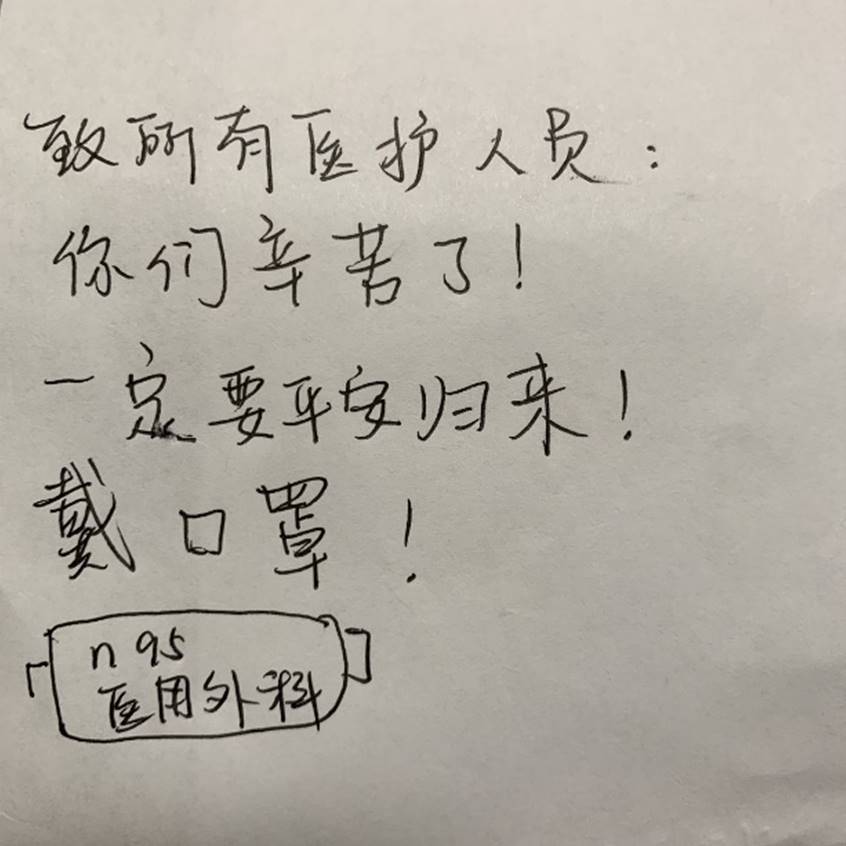 致所有医护人员：
你们辛苦了！
一定要平安归来！
戴口罩！
n95
医用外科